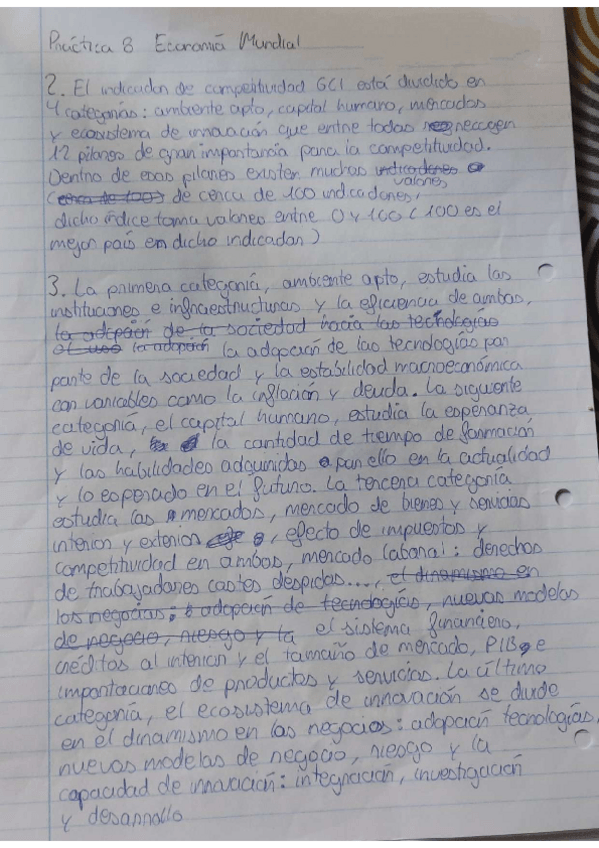 Práctica 8 Economía Mundial
2. El indicador de competitividad GCI está dividido en
4 categorías: ambiente apto, capital humano, mercados
y ecosistema de innovación que entre todas recogen
12 pilares de gran importancia para la competitividad.
Dentro de esos pilares existen muchos indicadores
valores
(cerca de 100) de cerca de 100 indicadores,
dicho índice toma valores entre 0 y 100 (100 es el
mejor país em dicho indicador)
3. La primera categoría, ambiente apto, estudia las
instituciones e infraestructuras y la eficiencia de ambas,
la adopción de la sociedad hacia las tecnologías
el uso la adopción la adopción de las tecnologías por
parte de la sociedad y la estabilidad macroeconómica
con variables como la inflación y deuda. La siguiente
categoría, el capital humano, estudia la esperanza
de vida, la cantidad de tiempo de formación
y las habilidades adquiridas por ello en la actualidad
y lo esperado en el futuro. La tercera categoría
estudia los mercados, mercado de bienes y servicios
interior y exterior, efecto de impuestos y
competitividad en ambos, mercado laboral: derechos
de trabajadores costes despidos..., el dinamismo en
los negocios: adopción de tecnologías, nuevos modelos
de negocio, riesgo y la el sistema financiero,
créditos al interior y el tamaño de mercado, PIB e
importaciones de productos y servicios. La último
categoría, el ecosistema de innovación se divide
en el dinamismo en los negocios: adopción tecnologías,
nuevos modelos de negocio, riesgo y la
capacidad de innovación: integración, investigación
y desarrollo